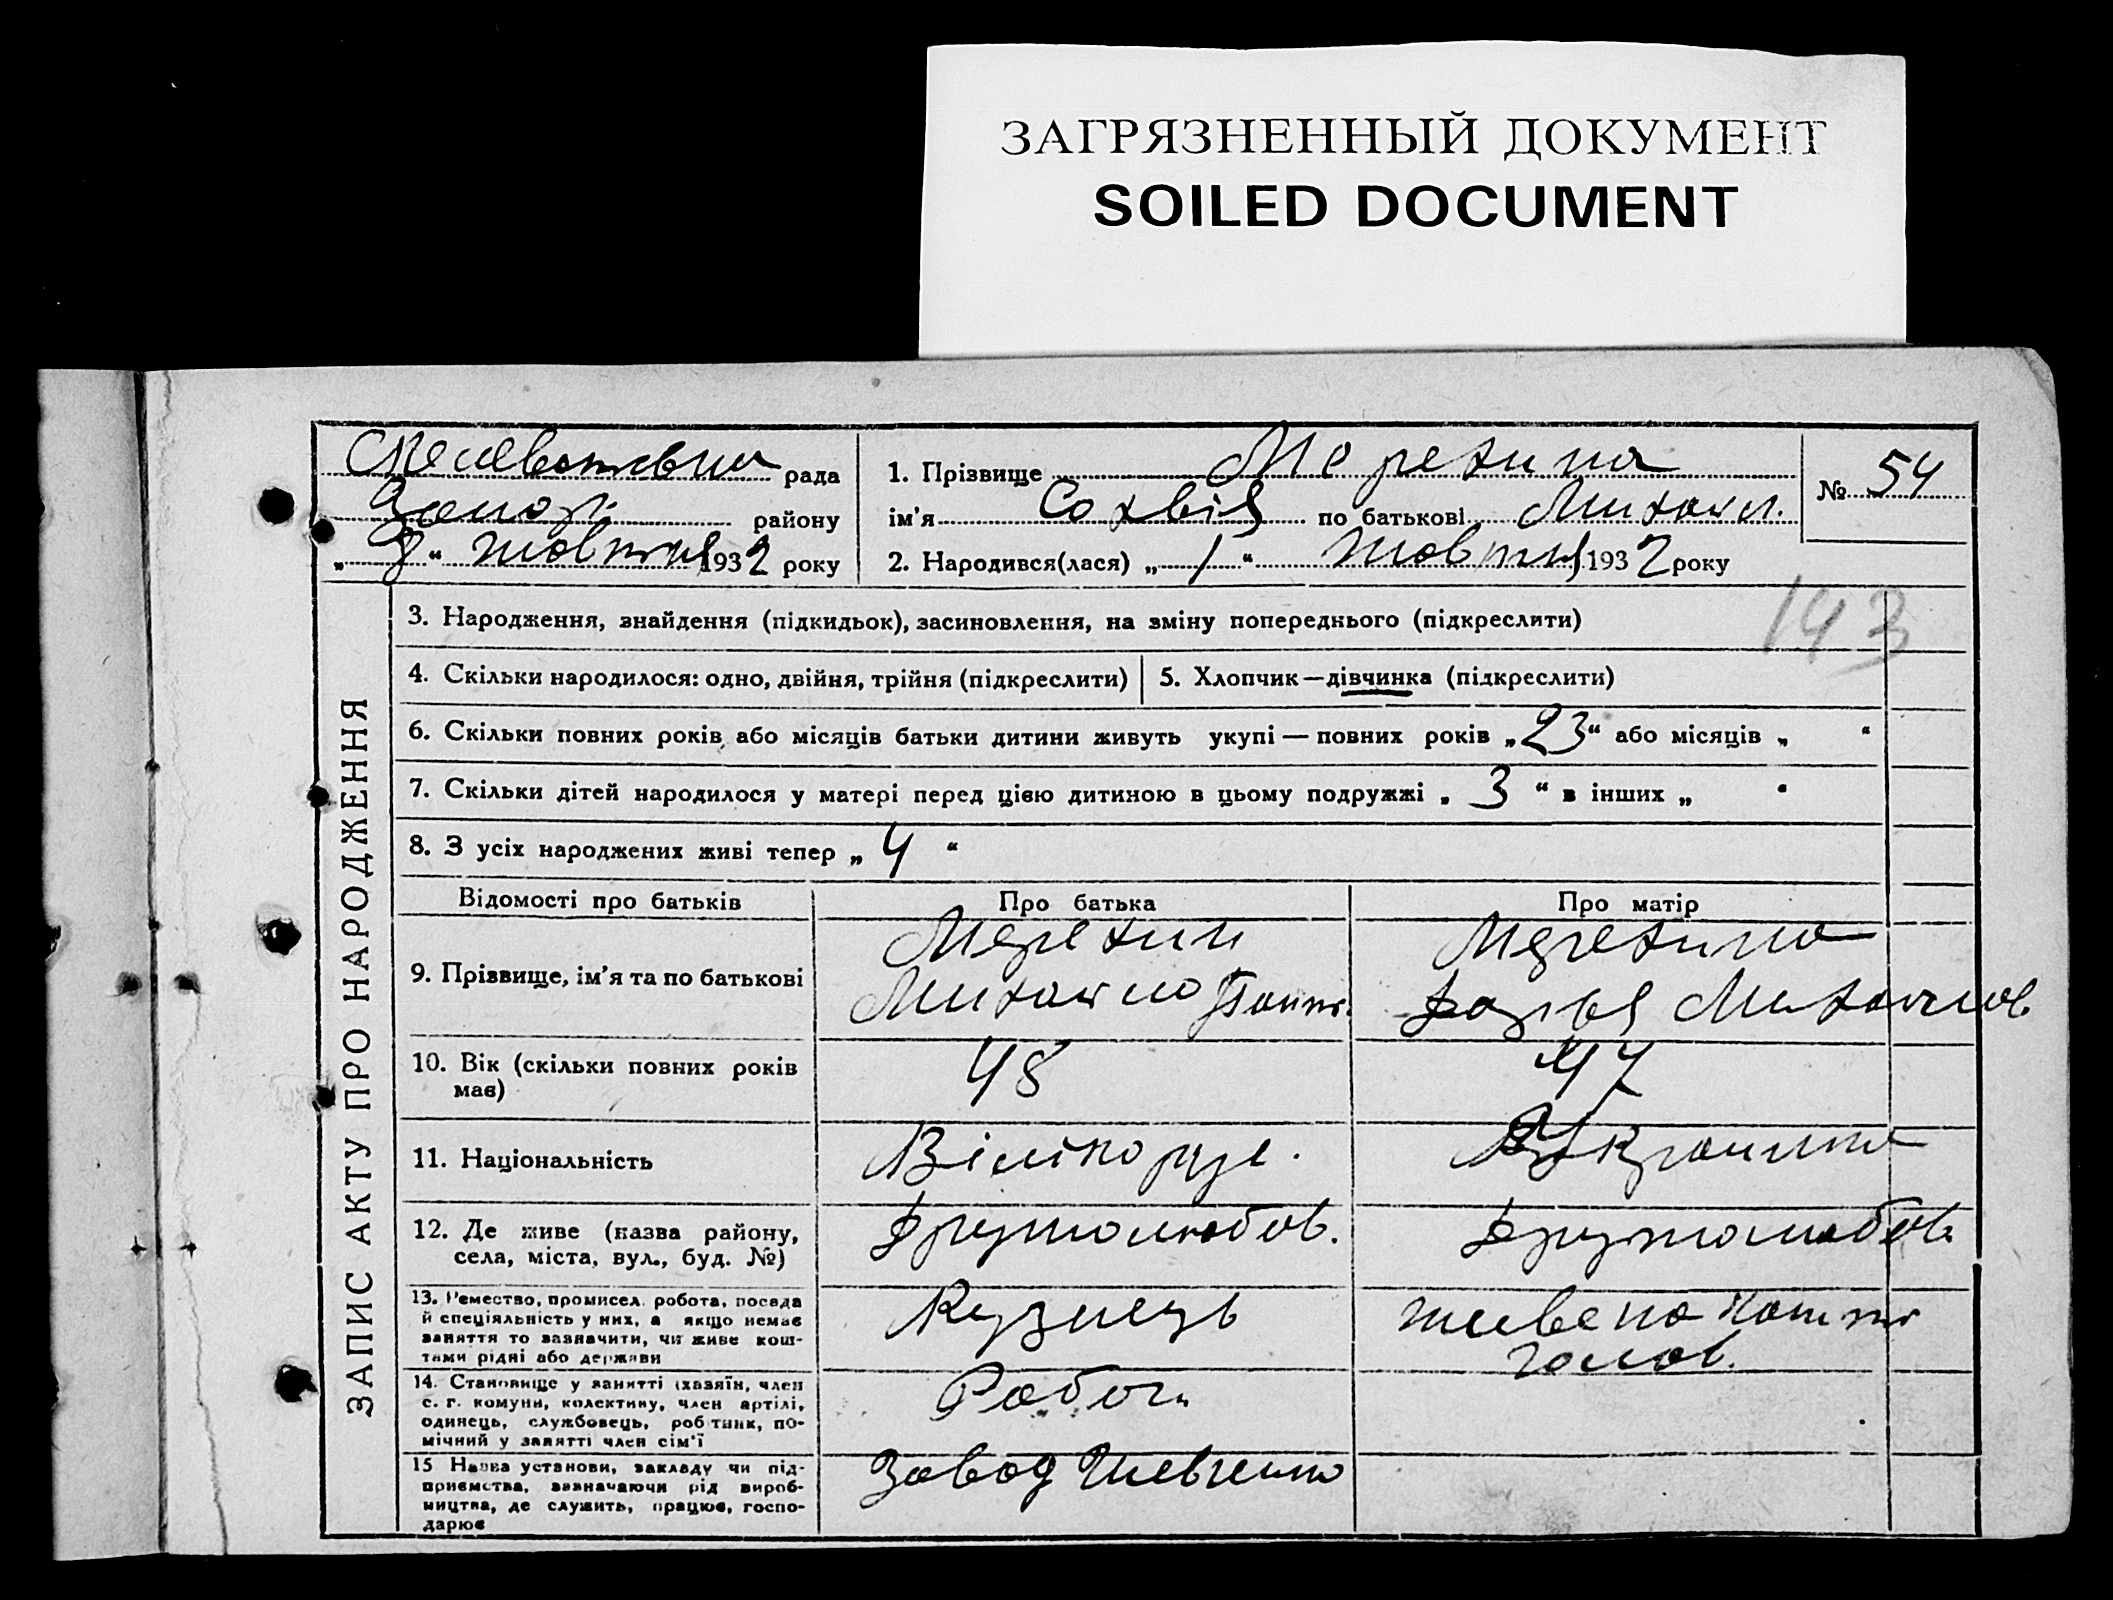 ЗАГРЯЗНЕННЫЙ ДОКУМЕНТ
SOILED DOCUMENT
рада
Запоз. району
„ 8 “ жовтня 1932 року
1. Прізвище Мерехина
ім'я Сохвія по батькові Михайл.
2. Народився(лася) „ 1 “ жовтня 1932 року
№ 54
143
ЗАПИС АКТУ ПРО НАРОДЖЕННЯ
3. Народження, знайдення (підкидьок), засиновлення, на зміну попереднього (підкреслити)
4. Скільки народилося: одно, двійня, трійня (підкреслити)
5. Хлопчик — дівчинка (підкреслити)
6. Скільки повних років або місяців батьки дитини живуть укупі — повних років „ 23 “ або місяців „ “
7. Скільки дітей народилося у матері перед цією дитиною в цьому подружжі „ 3 “ в інших „ “
8. З усіх народжених живі тепер „ 4 “
Відомості про батьків
Про батька
Про матір
9. Прізвище, ім'я та по батькові
Мерехин
Михайло
Мерехина
Дарья Михайлов
10. Вік (скільки повних років
має)
48
47
11. Національність
Вілікорус.
Українка
12. Де живе (назва району,
села, міста, вул., буд. №)
Другалюбов.
Другалюбов.
13. Ремество, промисел, робота, посада
й спеціяльність у них, а якщо немає
заняття то зазначити, чи живе кош-
тами рідні або держави
Кузнець
живе на кошти
голов.
14. Становище у занятті (хазяїн, член
с. г. комуни, колективу, член артілі,
одинець, службовець, робітник, по-
мічний у занятті член сім'ї
Робоч.
15 Назва установи, закладу чи під-
приємства, зазначаючи рід вироб-
ництва, де служить, працює, госпо-
дарює
Завод Шевченко